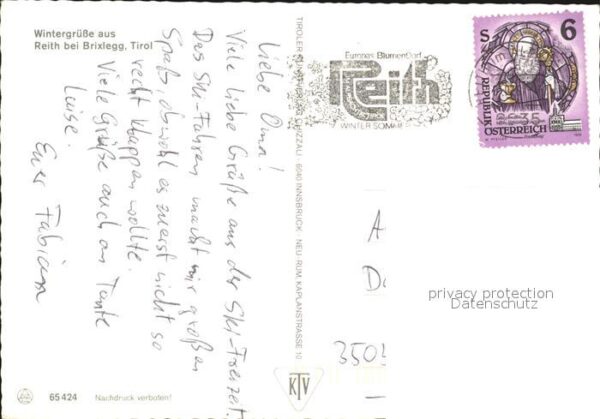 Wintergrüße aus
Reith bei Brixlegg, Tirol
Liebe Oma!
Viele liebe Grüße aus der Ski-Freizeit.
Das Ski-Fahren macht mir großen
Spaß, obwohl es zuerst nicht so
recht klappen wollte.
Viele Grüße auch an Tante
Luise.
Euer Fabian
65424 Nachdruck verboten!
TIROLER KUNSTVERLAG CHIZZALI 6040 INNSBRUCK NEU-RUM, KAPLANSTRASSE 10
KTV
Europas Blumendorf
Reith
WINTER SOMMER
S 6
REPUBLIK
ÖSTERREICH
A
D
350
privacy protection
Datenschutz